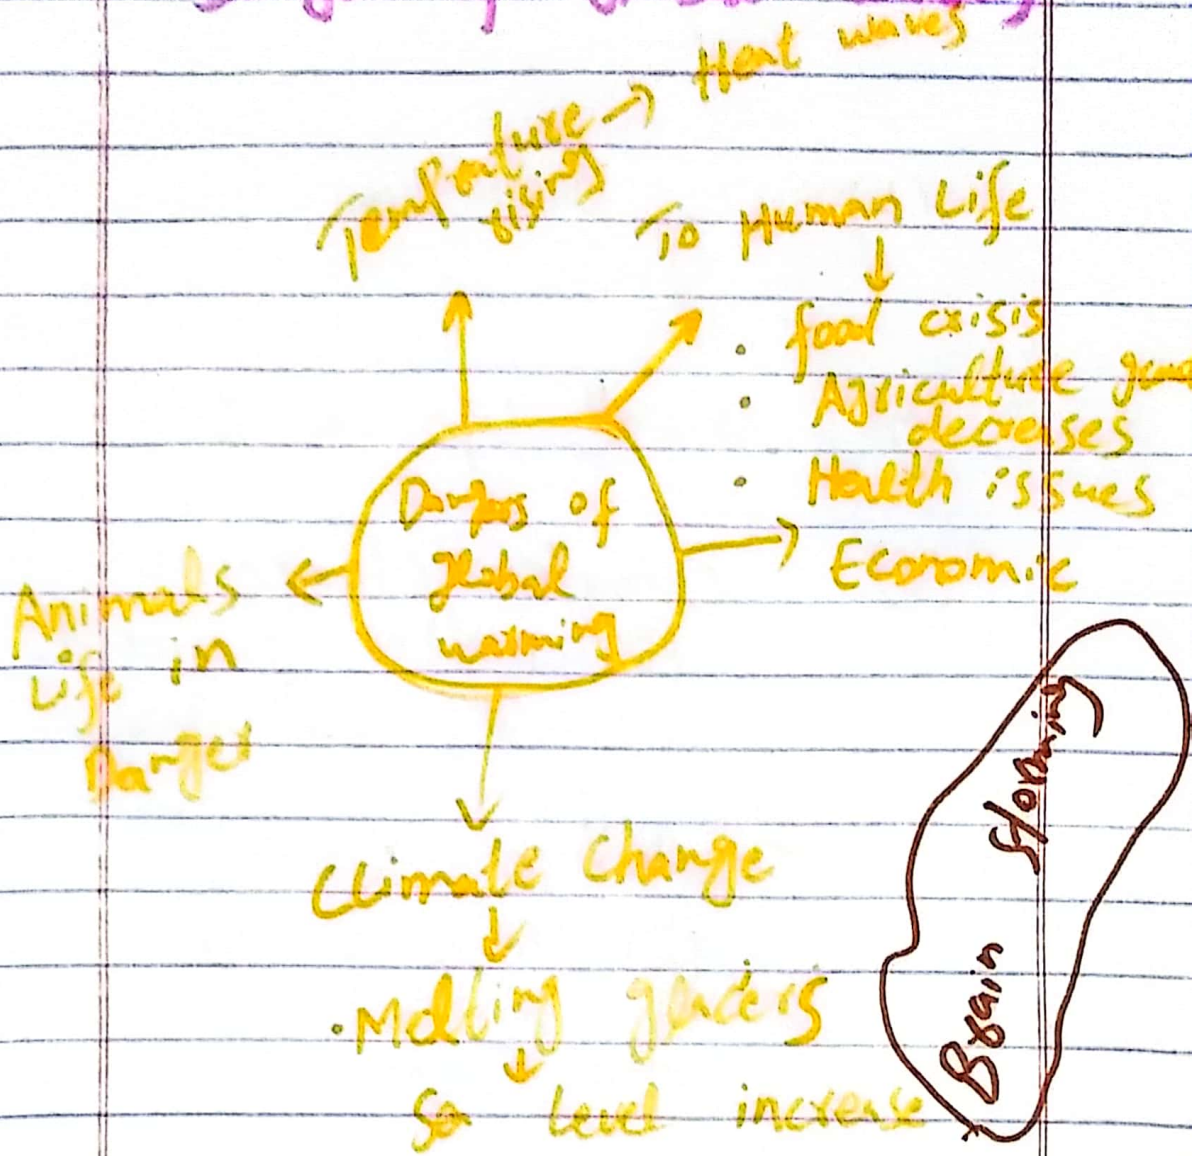 Heat waves
Temperature →
rising
To Human Life
↓
• food crisis
• Agriculture
decreases
• Health issues
Dangers of
global
warming
→ Economic
← Animals
Life in
Danger
Climate Change
↓
• Melting glaciers
↓
Sea level increase
Brain storming